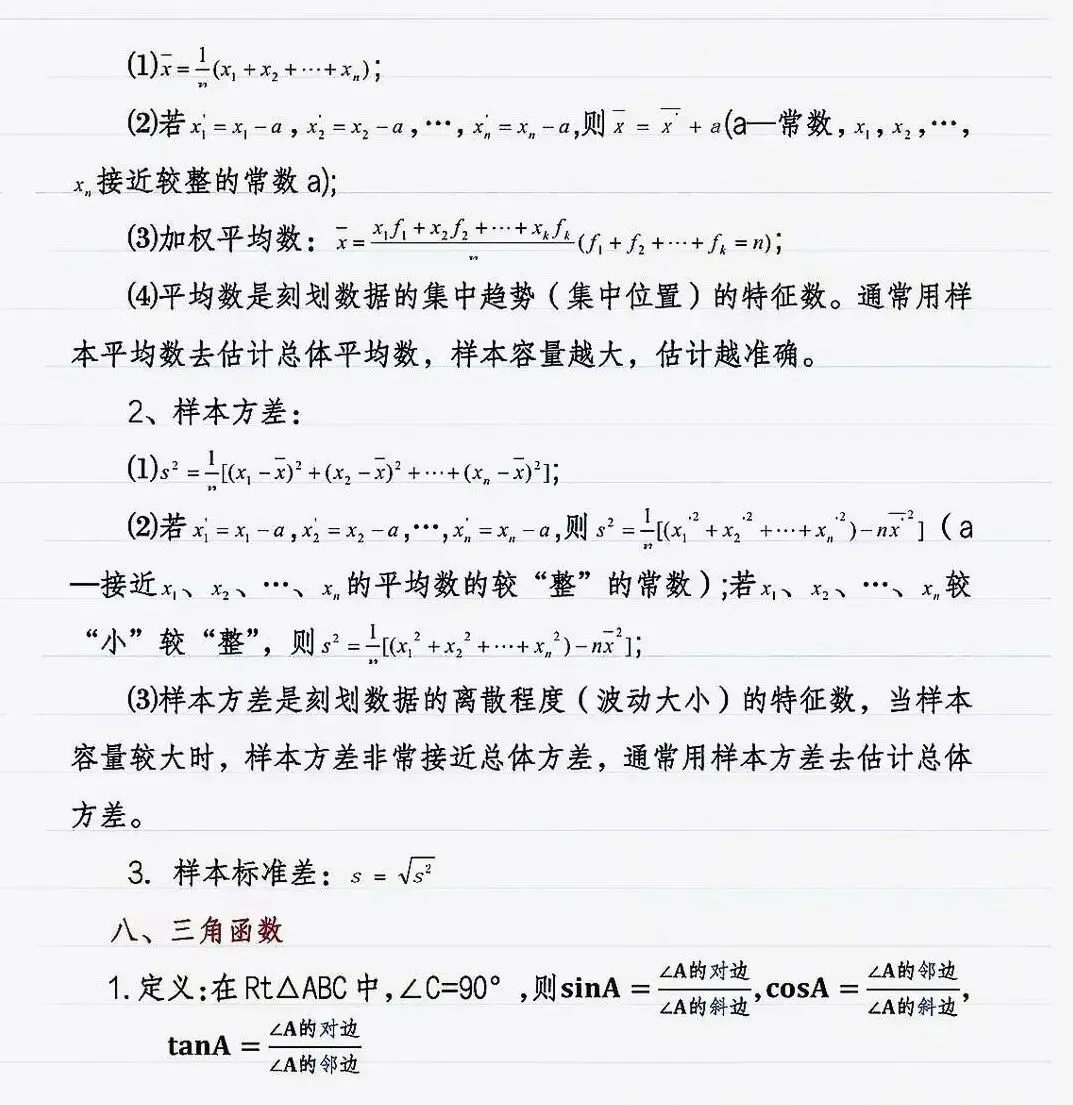 (1)x̄=1/n(x₁+x₂+⋯+xₙ);
(2)若x₁'=x₁−a,x₂'=x₂−a,⋯,xₙ'=xₙ−a,则x̄=x̄'+a(a—常数,x₁,x₂,⋯,
xₙ接近较整的常数a);
(3)加权平均数:x̄=(x₁f₁+x₂f₂+⋯+xₖfₖ)/n(f₁+f₂+⋯+fₖ=n);
(4)平均数是刻划数据的集中趋势(集中位置)的特征数。通常用样
本平均数去估计总体平均数,样本容量越大,估计越准确。
2、样本方差:
(1)s²=1/n[(x₁−x̄)²+(x₂−x̄)²+⋯+(xₙ−x̄)²];
(2)若x₁'=x₁−a,x₂'=x₂−a,⋯,xₙ'=xₙ−a,则s²=1/n[(x₁'²+x₂'²+⋯+xₙ'²)−nx̄'²](a
—接近x₁、x₂、⋯、xₙ的平均数的较“整”的常数);若x₁、x₂、⋯、xₙ较
“小”较“整”,则s²=1/n[(x₁²+x₂²+⋯+xₙ²)−nx̄²];
(3)样本方差是刻划数据的离散程度(波动大小)的特征数,当样本
容量较大时,样本方差非常接近总体方差,通常用样本方差去估计总体
方差。
3. 样本标准差:s=√s²
八、三角函数
1.定义:在Rt△ABC中,∠C=90°,则sinA=∠A的对边/∠A的斜边,cosA=∠A的邻边/∠A的斜边,
tanA=∠A的对边/∠A的邻边